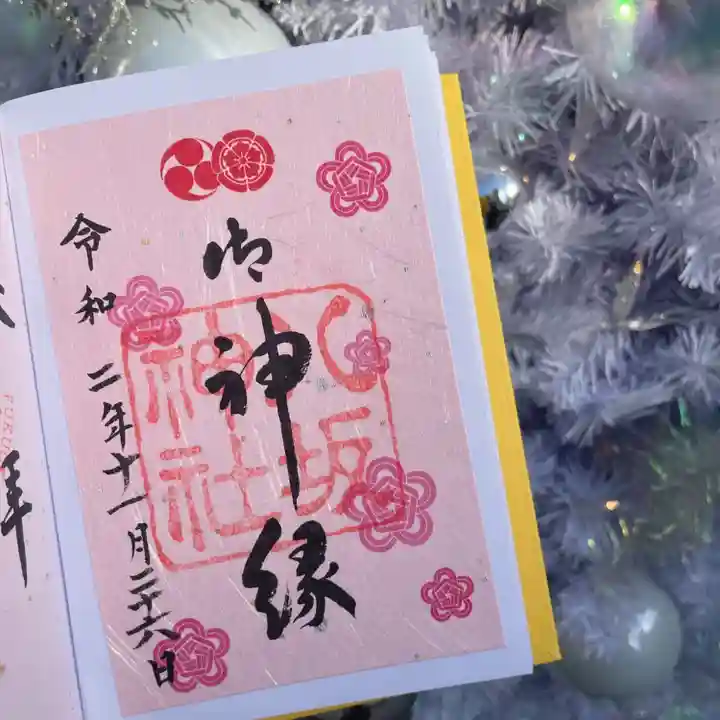 御神縁
八坂
神社
令和二年十一月二十六日
拝